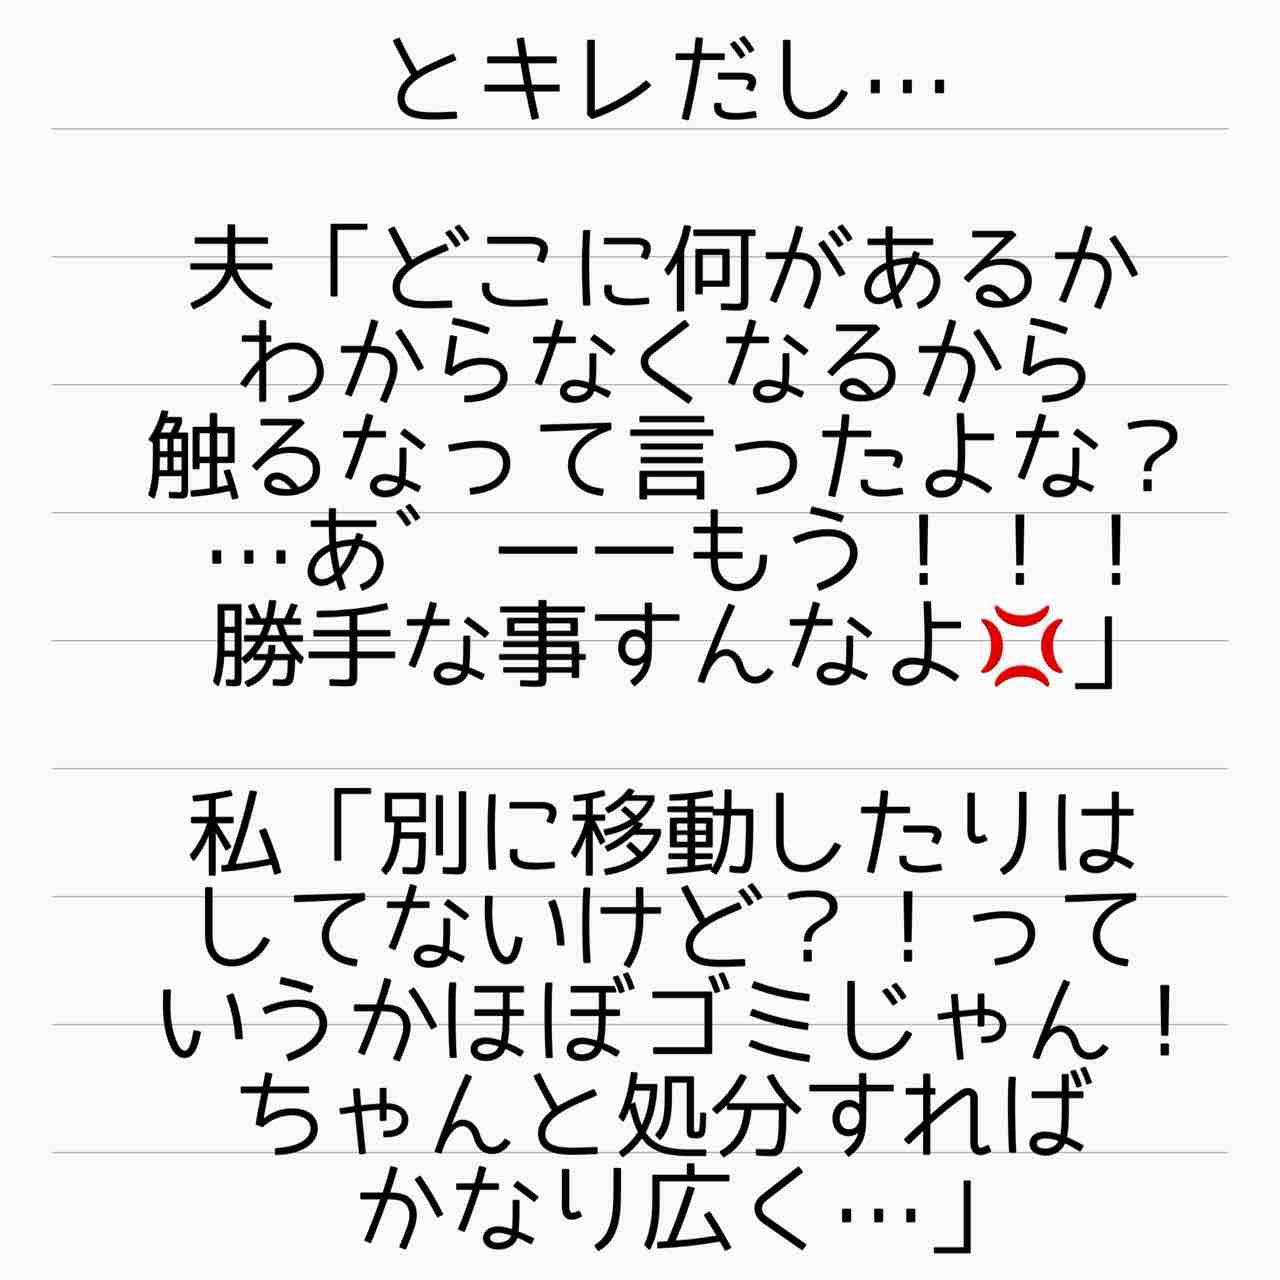 とキレだし…
夫「どこに何があるか
わからなくなるから
触るなって言ったよな？
…あ゛ーーもう！！！
勝手な事すんなよ💢」
私「別に移動したりは
してないけど？！って
いうかほぼゴミじゃん！
ちゃんと処分すれば
かなり広く…」